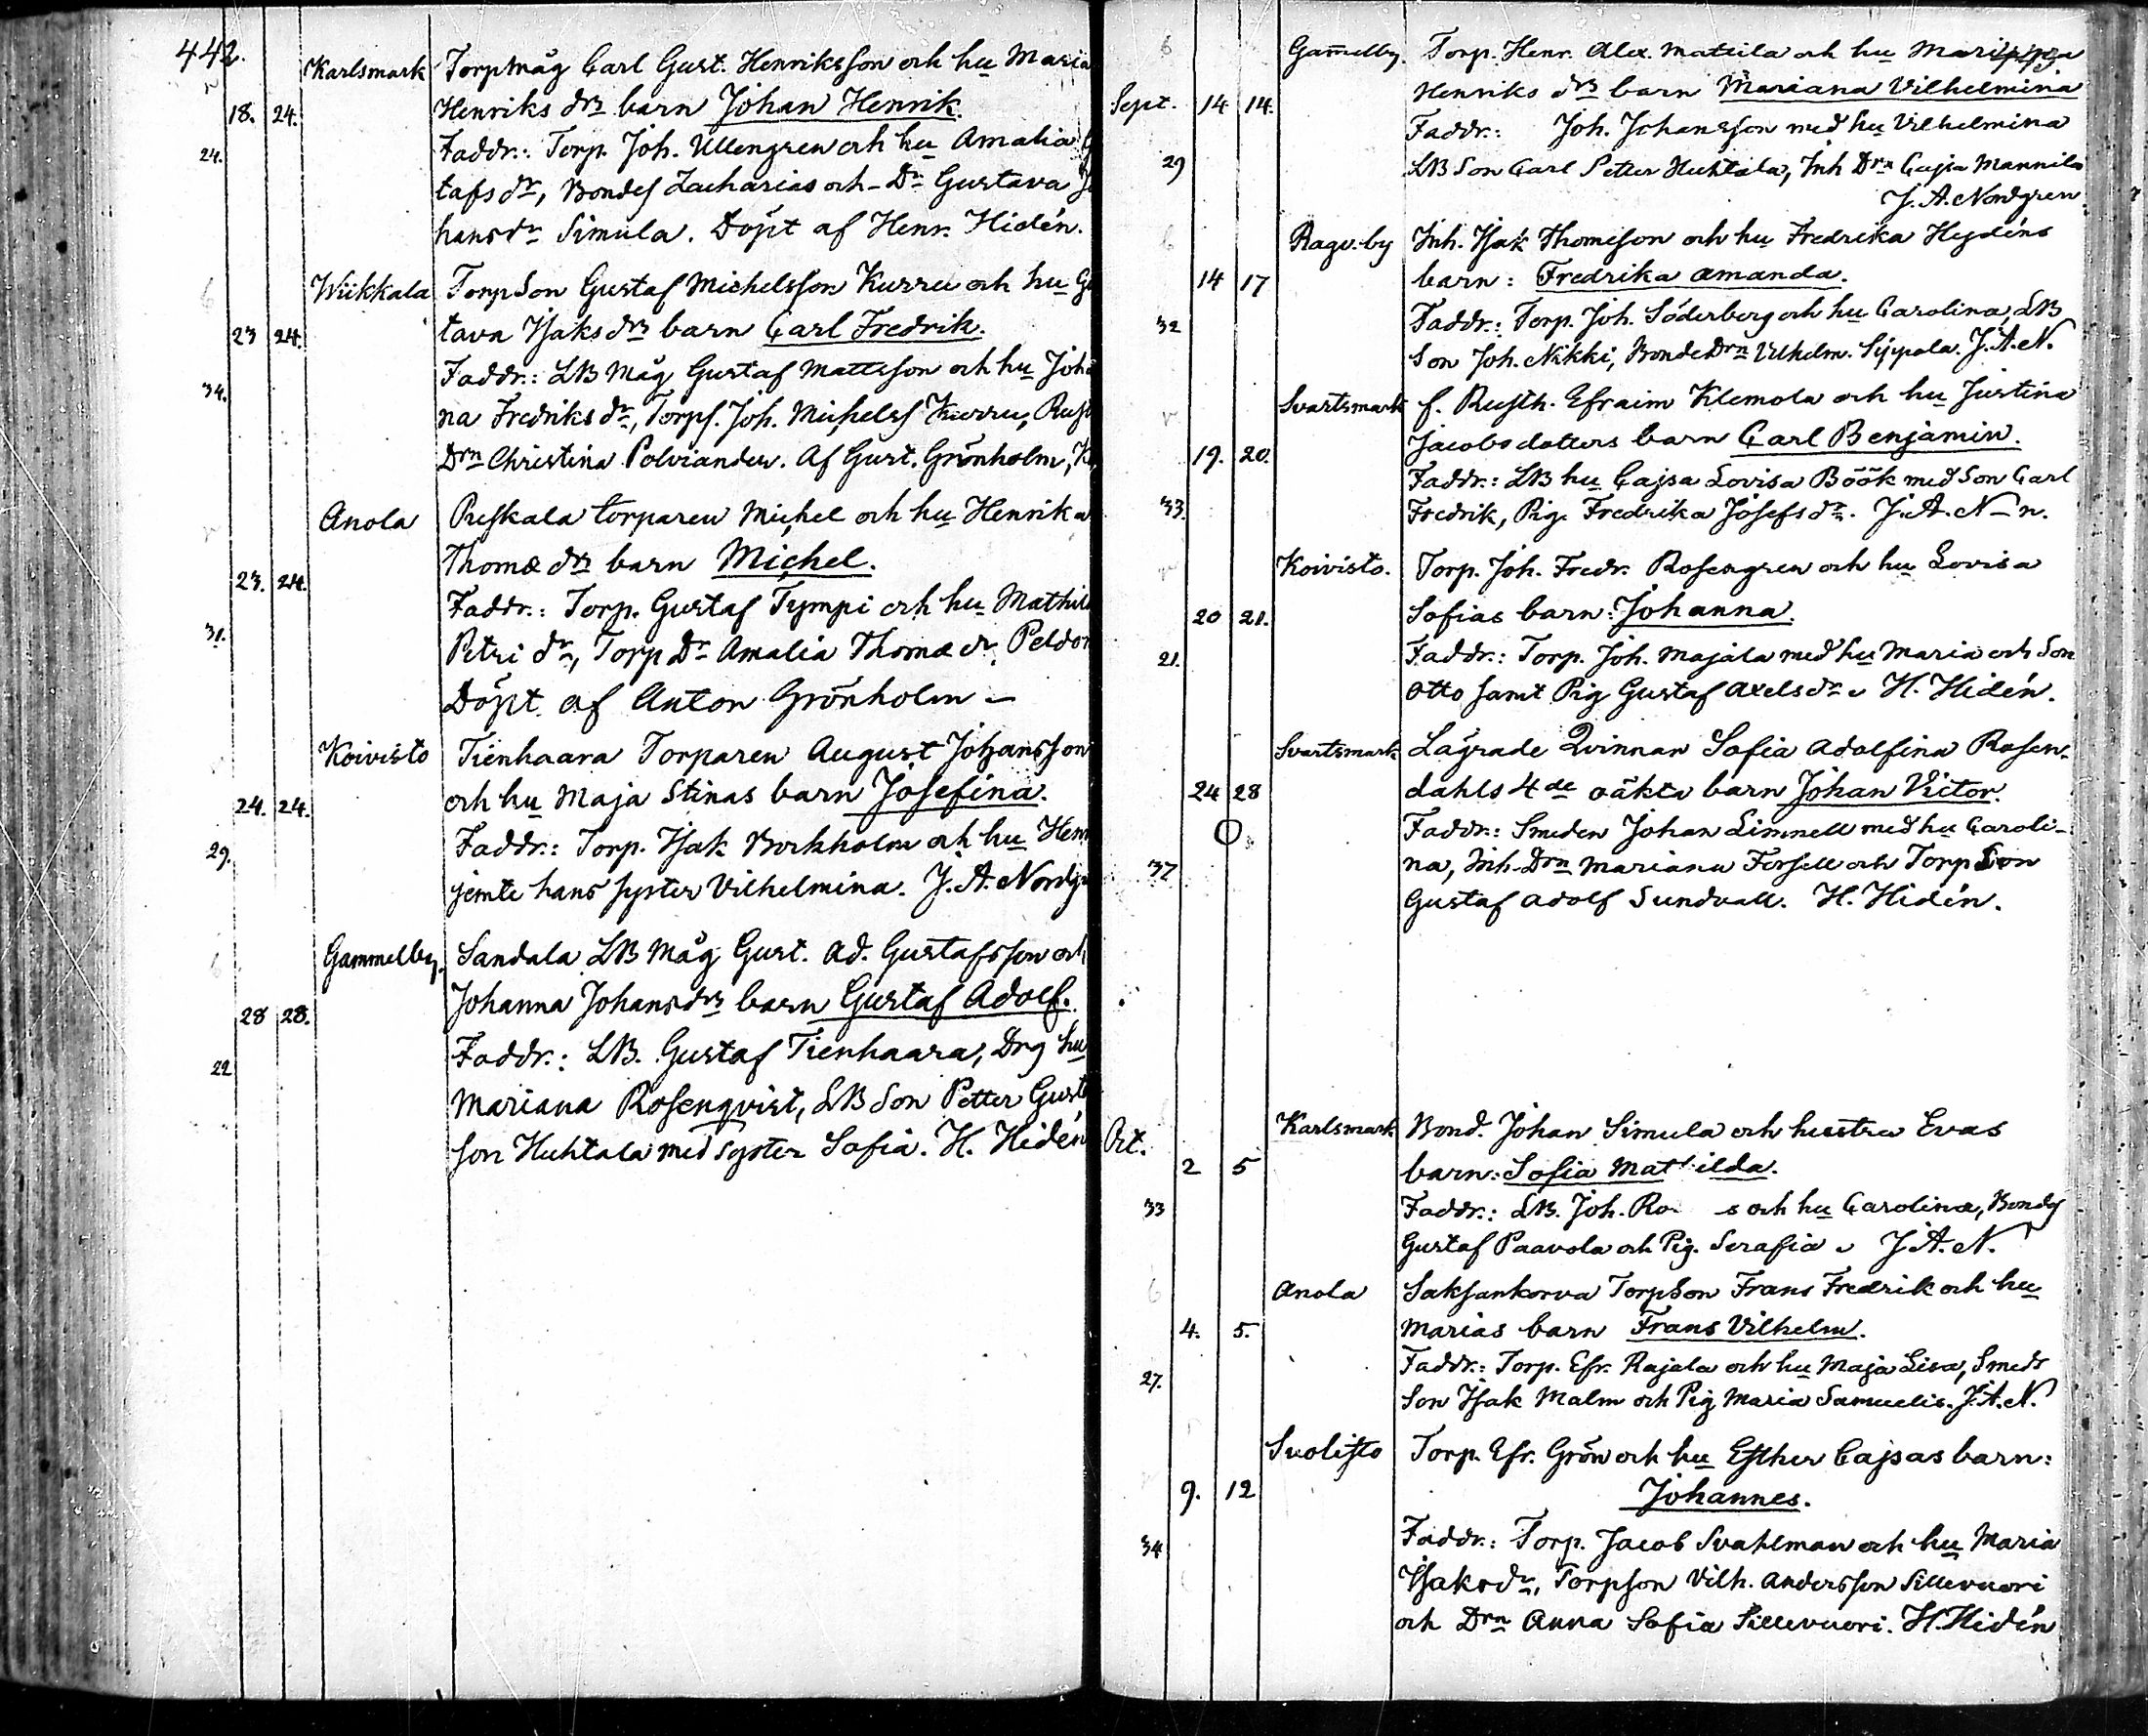 442.
Karlsmark Torpmåg Carl Gust. Henriksson och hu Maria
18. 24. Henriks drs barn Johan Henrik.
24. Faddr.: Torp. Joh. Ullengren och hu Amalia G
tafs dr, Bondes Zacharias och Dr Gustava J
hans dr Simula. Döpt af Henr. Hidén.
Wiikkala TorpSon Gustaf Michelsson Kurru och hu G
23 24. tava Isaks drs barn Carl Fredrik.
Faddr.: LB Måg Gustaf Mattsson och hu Joha
34. na Fredriks dr, Torps. Joh. Michelss Kurru, Rust
Drn Christina Polviander. Af Gust. Grönholm, K
Anola Preskala torparen Michel och hu Henrika
23. 24. Thomæ drs barn Michel.
Faddr.: Torp. Gustaf Tympi och hu Mathil
31. Petri dr, Torp Dr Amalia Thomæ dr, Peldon
Döpt af Anton Grönholm –
Koivisto Tienhaara Torparen August Johansson
24. 24. och hu Maja Stinas barn Josefina.
29. Faddr.: Torp. Isak Borkholm och hu Hen
jemte hans syster Vilhelmina. J. A. Nordg
Gammelby. Sandala LB Måg Gust. Ad. Gustafsson och
28 28. Johanna Johansdrs barn Gustaf Adolf.
22 Faddr.: LB. Gustaf Tienhaara, Drg hu
Mariana Rosenqvist, LB Son Petter Gust
son Huhtala med syster Sofia. H. Hidén
6 Gammelby. Torp. Henr. Alex. Mattila och hu
Sept. 14 14. Henriks drs barn Mariana Vilhelmina
Faddr.: Joh. Johansson med hu Vilhelmina
29 LB Son Carl Petter Huhtala, Inh Drn Cajsa Mannila
J. A. Nordgren.
6 Ragv. by Inh. Isak Thomeson och hu Fredrika Hydéns
14 17 barn: Fredrika Amanda.
32 Faddr.: Torp. Joh. Söderberg och hu Carolina, LB
Son Joh. Nikki, BondeDrn Vilhelm. Syppola. J. A. N.
Svartsmark f. Rusth. Efraim Klemola och hu Justina
19. 20. Jacobs dotters barn Carl Benjamin.
Faddr.: LB hu Cajsa Lovisa Böök med Son Carl
33. Fredrik, Pig. Fredrika Josefs dr. J. A. N–n.
Koivisto. Torp. Joh. Fredr. Rosengren och hu Lovisa
20 21. Sofias barn: Johanna.
21. Faddr.: Torp. Joh. Majala med hu Maria och Son
Otto samt Pig Gustaf Axels dr. H. Hidén.
Svartsmark Lägrade Qvinnan Sofia Adolfina Rosen-
24 28 dahls 4de oäkta barn Johan Victor.
Faddr.: Smeden Johan Limnell med hu Caroli-
37 na, Inh. Drn Mariana Forsell och TorpSon
Gustaf Adolf Sundvall. H. Hidén.
Karlsmark Bond. Johan Simula och hustru Evas
Oct. 2 5 barn: Sofia Mathilda.
33 Faddr.: LB. Joh. Ro s och hu Carolina, Bondes
Gustaf Paavola och Pig. Serafia. J. A. N.
6 Anola Saksankorva TorpSon Frans Fredrik och hu
4. 5. Marias barn Frans Vilhelm.
27. Faddr.: Torp. Efr. Rajala och hu Maja Lisa, Smeds
Son Isak Malm och Pig Maria Samuelis. J. A. N.
Suolisto Torp. Efr. Grön och hu Esther Cajsas barn:
9. 12 Johannes.
34 Faddr.: Torp. Jacob Svahlman och hu Maria
Isaks dr, Torpson Vilh. Andersson Sillevuori
och Drn Anna Sofia Sillevuori. H. Hidén